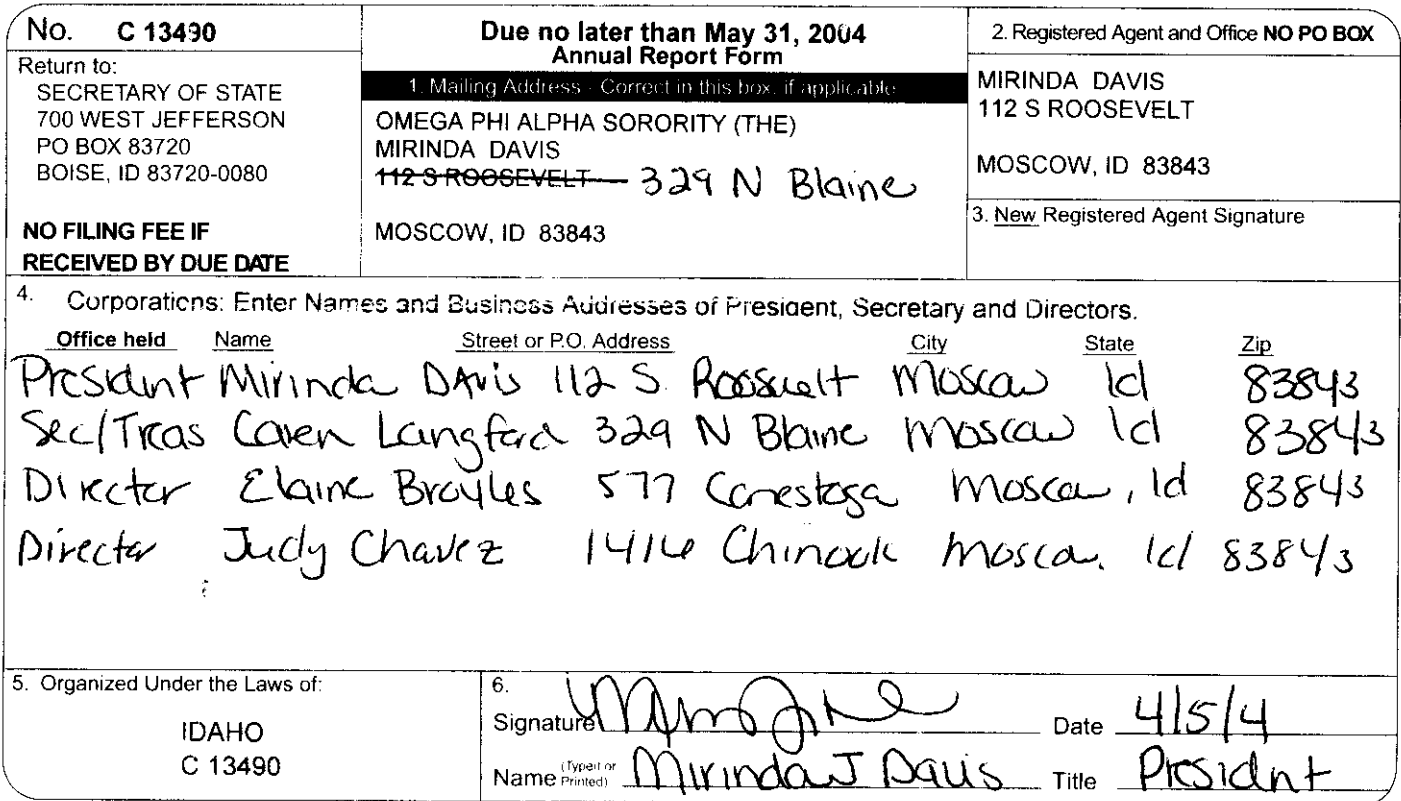 No. C 13490
Return to:
SECRETARY OF STATE
700 WEST JEFFERSON
PO BOX 83720
BOISE, ID 83720-0080
NO FILING FEE IF
RECEIVED BY DUE DATE
Due no later than May 31, 2004
Annual Report Form
1. Mailing Address - Correct in this box, if applicable
OMEGA PHI ALPHA SORORITY (THE)
MIRINDA DAVIS
112 S ROOSEVELT 329 N Blaine
MOSCOW, ID 83843
2. Registered Agent and Office NO PO BOX
MIRINDA DAVIS
112 S ROOSEVELT
MOSCOW, ID 83843
3. New Registered Agent Signature
4. Corporations: Enter Names and Business Addresses of President, Secretary and Directors.
Office held Name Street or P.O. Address City State Zip
President Mirinda Davis 112 S. Roosevelt Moscow Id 83843
Sec/Treas Caren Langford 329 N Blaine Moscow Id 83843
Director Elaine Broyles 577 Conestoga Moscow, Id 83843
Director Judy Chavez 1416 Chinook Moscow, Id 83843
5. Organized Under the Laws of:
IDAHO
C 13490
6.
Signature Date 4/5/4
Name (Typed or Printed) Mirinda J Davis Title President